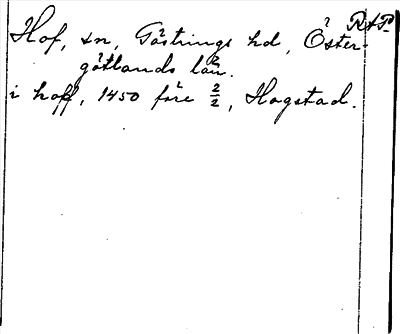 RAP.
Hof, sn, Göstrings hd, Öster-
götlands län.
i hoff, 1450 före 2/2, Hogstad.